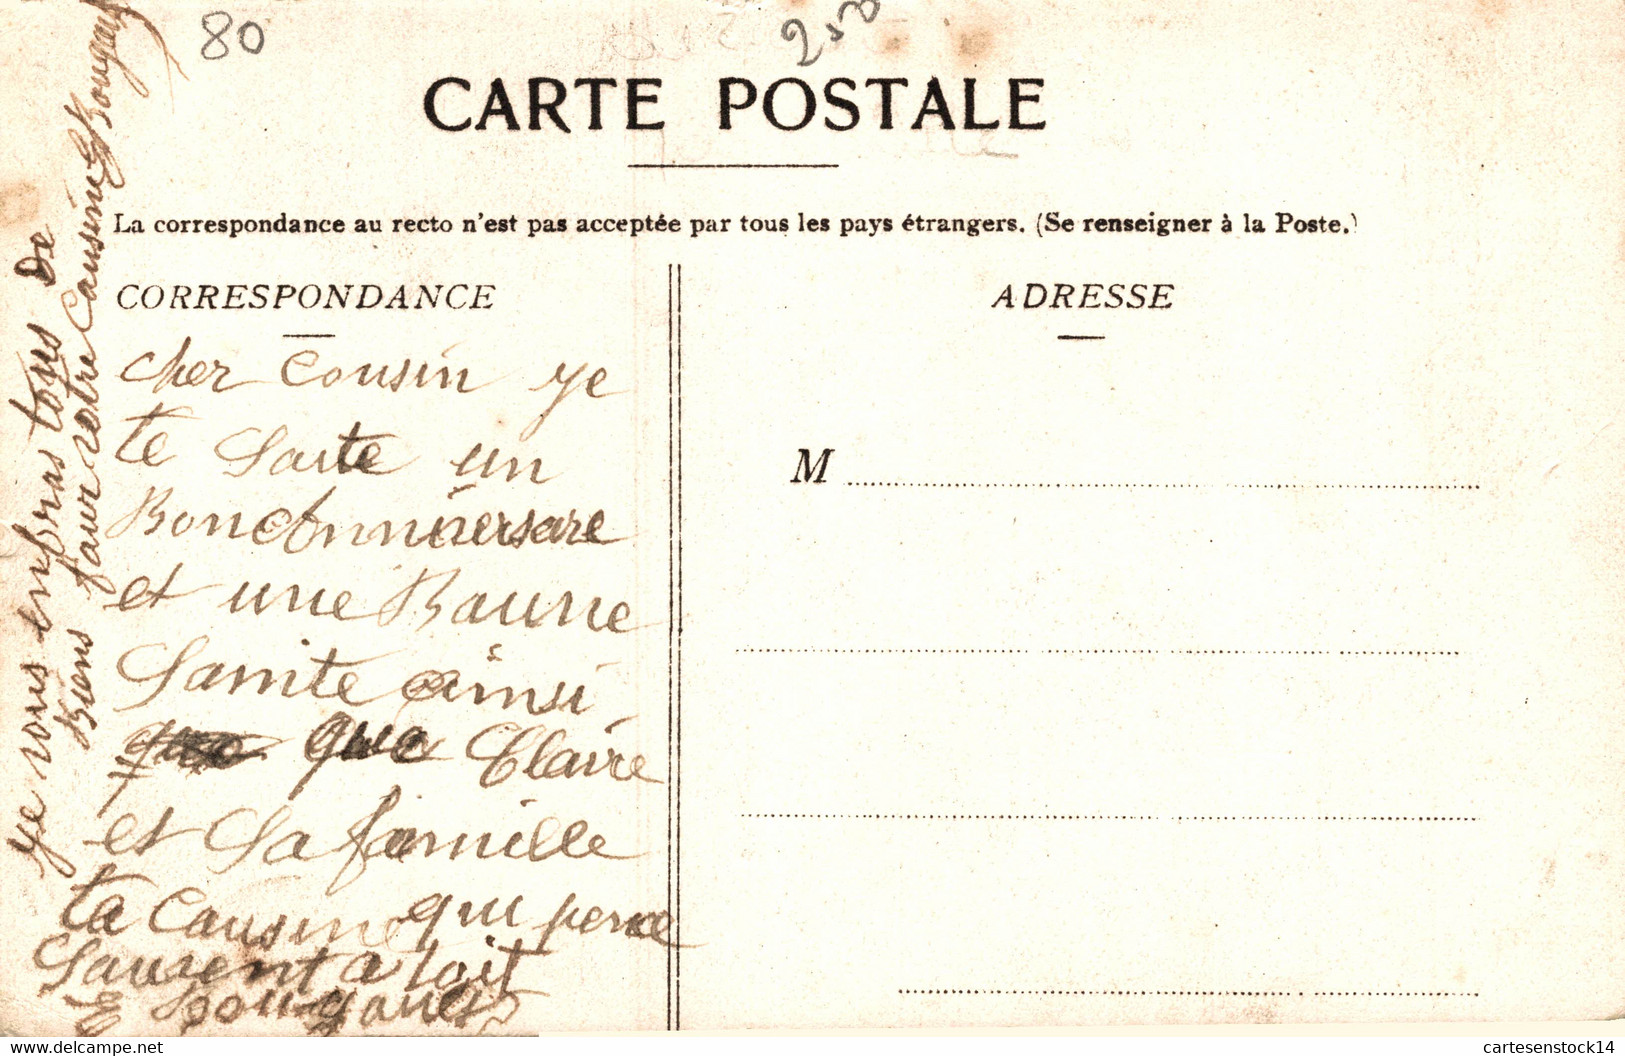 80
250
CARTE POSTALE
La correspondance au recto n'est pas acceptée par tous les pays étrangers. (Se renseigner à la Poste.)
CORRESPONDANCE
ADRESSE
M
cher Cousin ye
te Saite un
Bon Anniversare
et une Baune
Sanite ainsi
que que Claire
et Sa famille
ta Causine qui pence
Sauvent a toit
E
ye vous enbras tous De
Biens
votre Causine E
www.delcampe.net
cartesenstock14